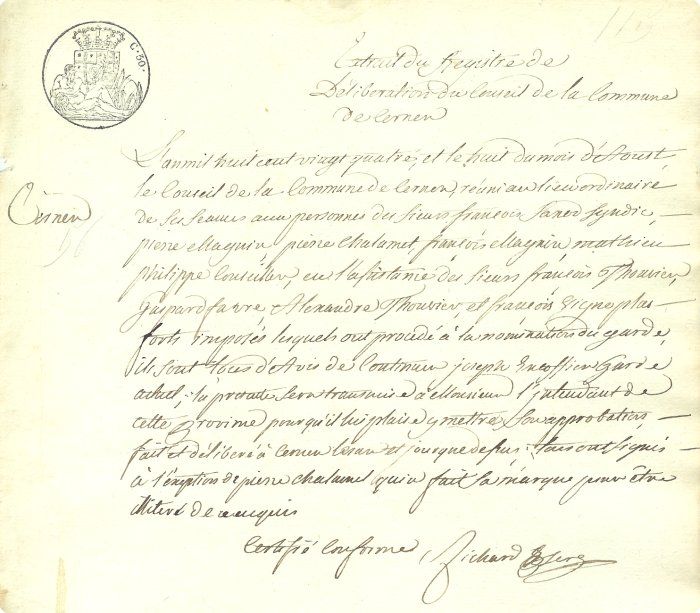 C. 50.
Extrait du Registre de
Déliberation du Conseil de la Commune
de Cernen
L'an mil huit cent vingt quatre, et le huit du mois d'Aoust
Cernen
le Conseil de la Commune de Cernen, réuni au lieu ordinaire
de ses seances aux personnes des sieurs françois Syndic
pierre Magnin pierre Chalamet, françois Magnin mathieu
philippe Conseiller, en l'assistance des sieurs françois Thouvier,
Gaspard favre Alexandre Thouvier, et francois plus
forts imposés lesquels ont procédé à la nomination du garde,
ils sont tous d'Avis de Continuer joseph garde
actuel; la presente sera transmise à Monsieur l'intendant de
cette province pour qu'il lui plaise y mettre son approbation,
fait et déliberé à Cernen les an et jour que dessus tous ont signés
à l'éxeption de pierre chalamet qui a fait sa marque pour être
illiteré de ce enquis
Certifié Conforme Richard